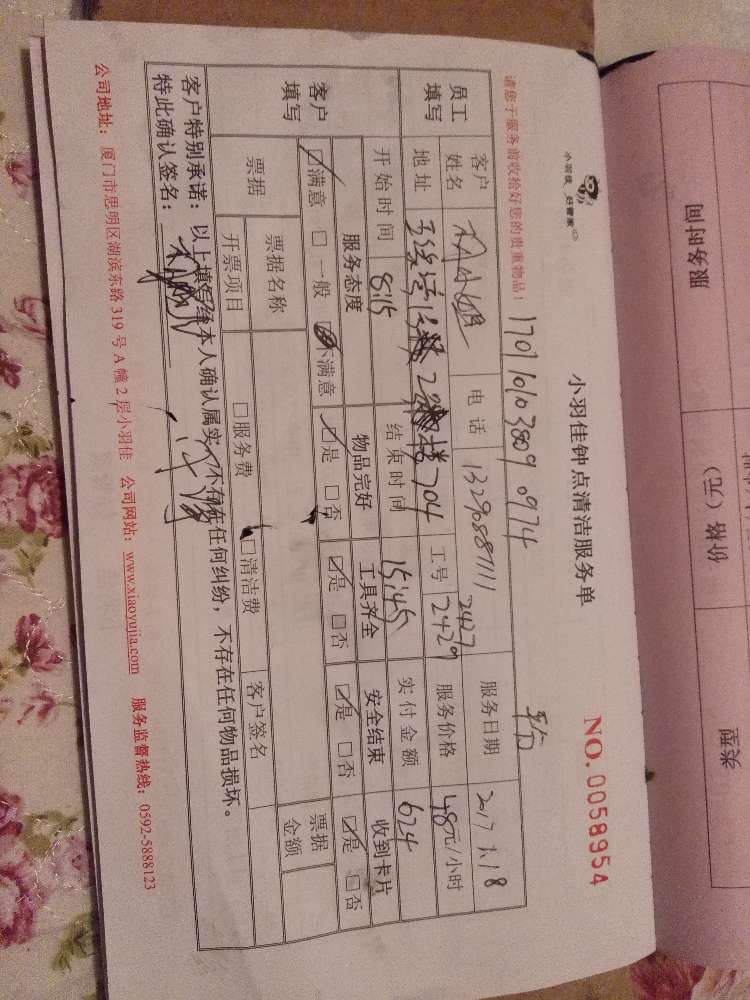 小羽佳 好管家
小羽佳钟点清洁服务单
NO. 0058954
170110103809 0974
平台
请您于服务前收拾好您的贵重物品！
员工填写
客户姓名 林小姐 电话 13290887111 服务日期 2017 1.18
地址 704 工号 2427 2429 服务价格 48元/小时
开始时间 8:15 结束时间 15:45 实付金额 624
客户填写
服务态度 物品完好 工具齐全 安全结束 收到卡片
☑满意 □一般 □不满意 ☑是 □否 ☑是 □否 ☑是 □否 ☑是 □否
票据 票据名称 票据金额
开票项目 □服务费 □清洁费 客户签名
客户特别承诺：以上填写经本人确认属实，不存在任何纠纷，不存在任何物品损坏。
特此确认签名：
公司地址：厦门市思明区湖滨东路 319 号 A 幢 2 层小羽佳 公司网站：www.xiaoyujia.com 服务监督热线：0592-5888123
服务时间 价格（元） 类型